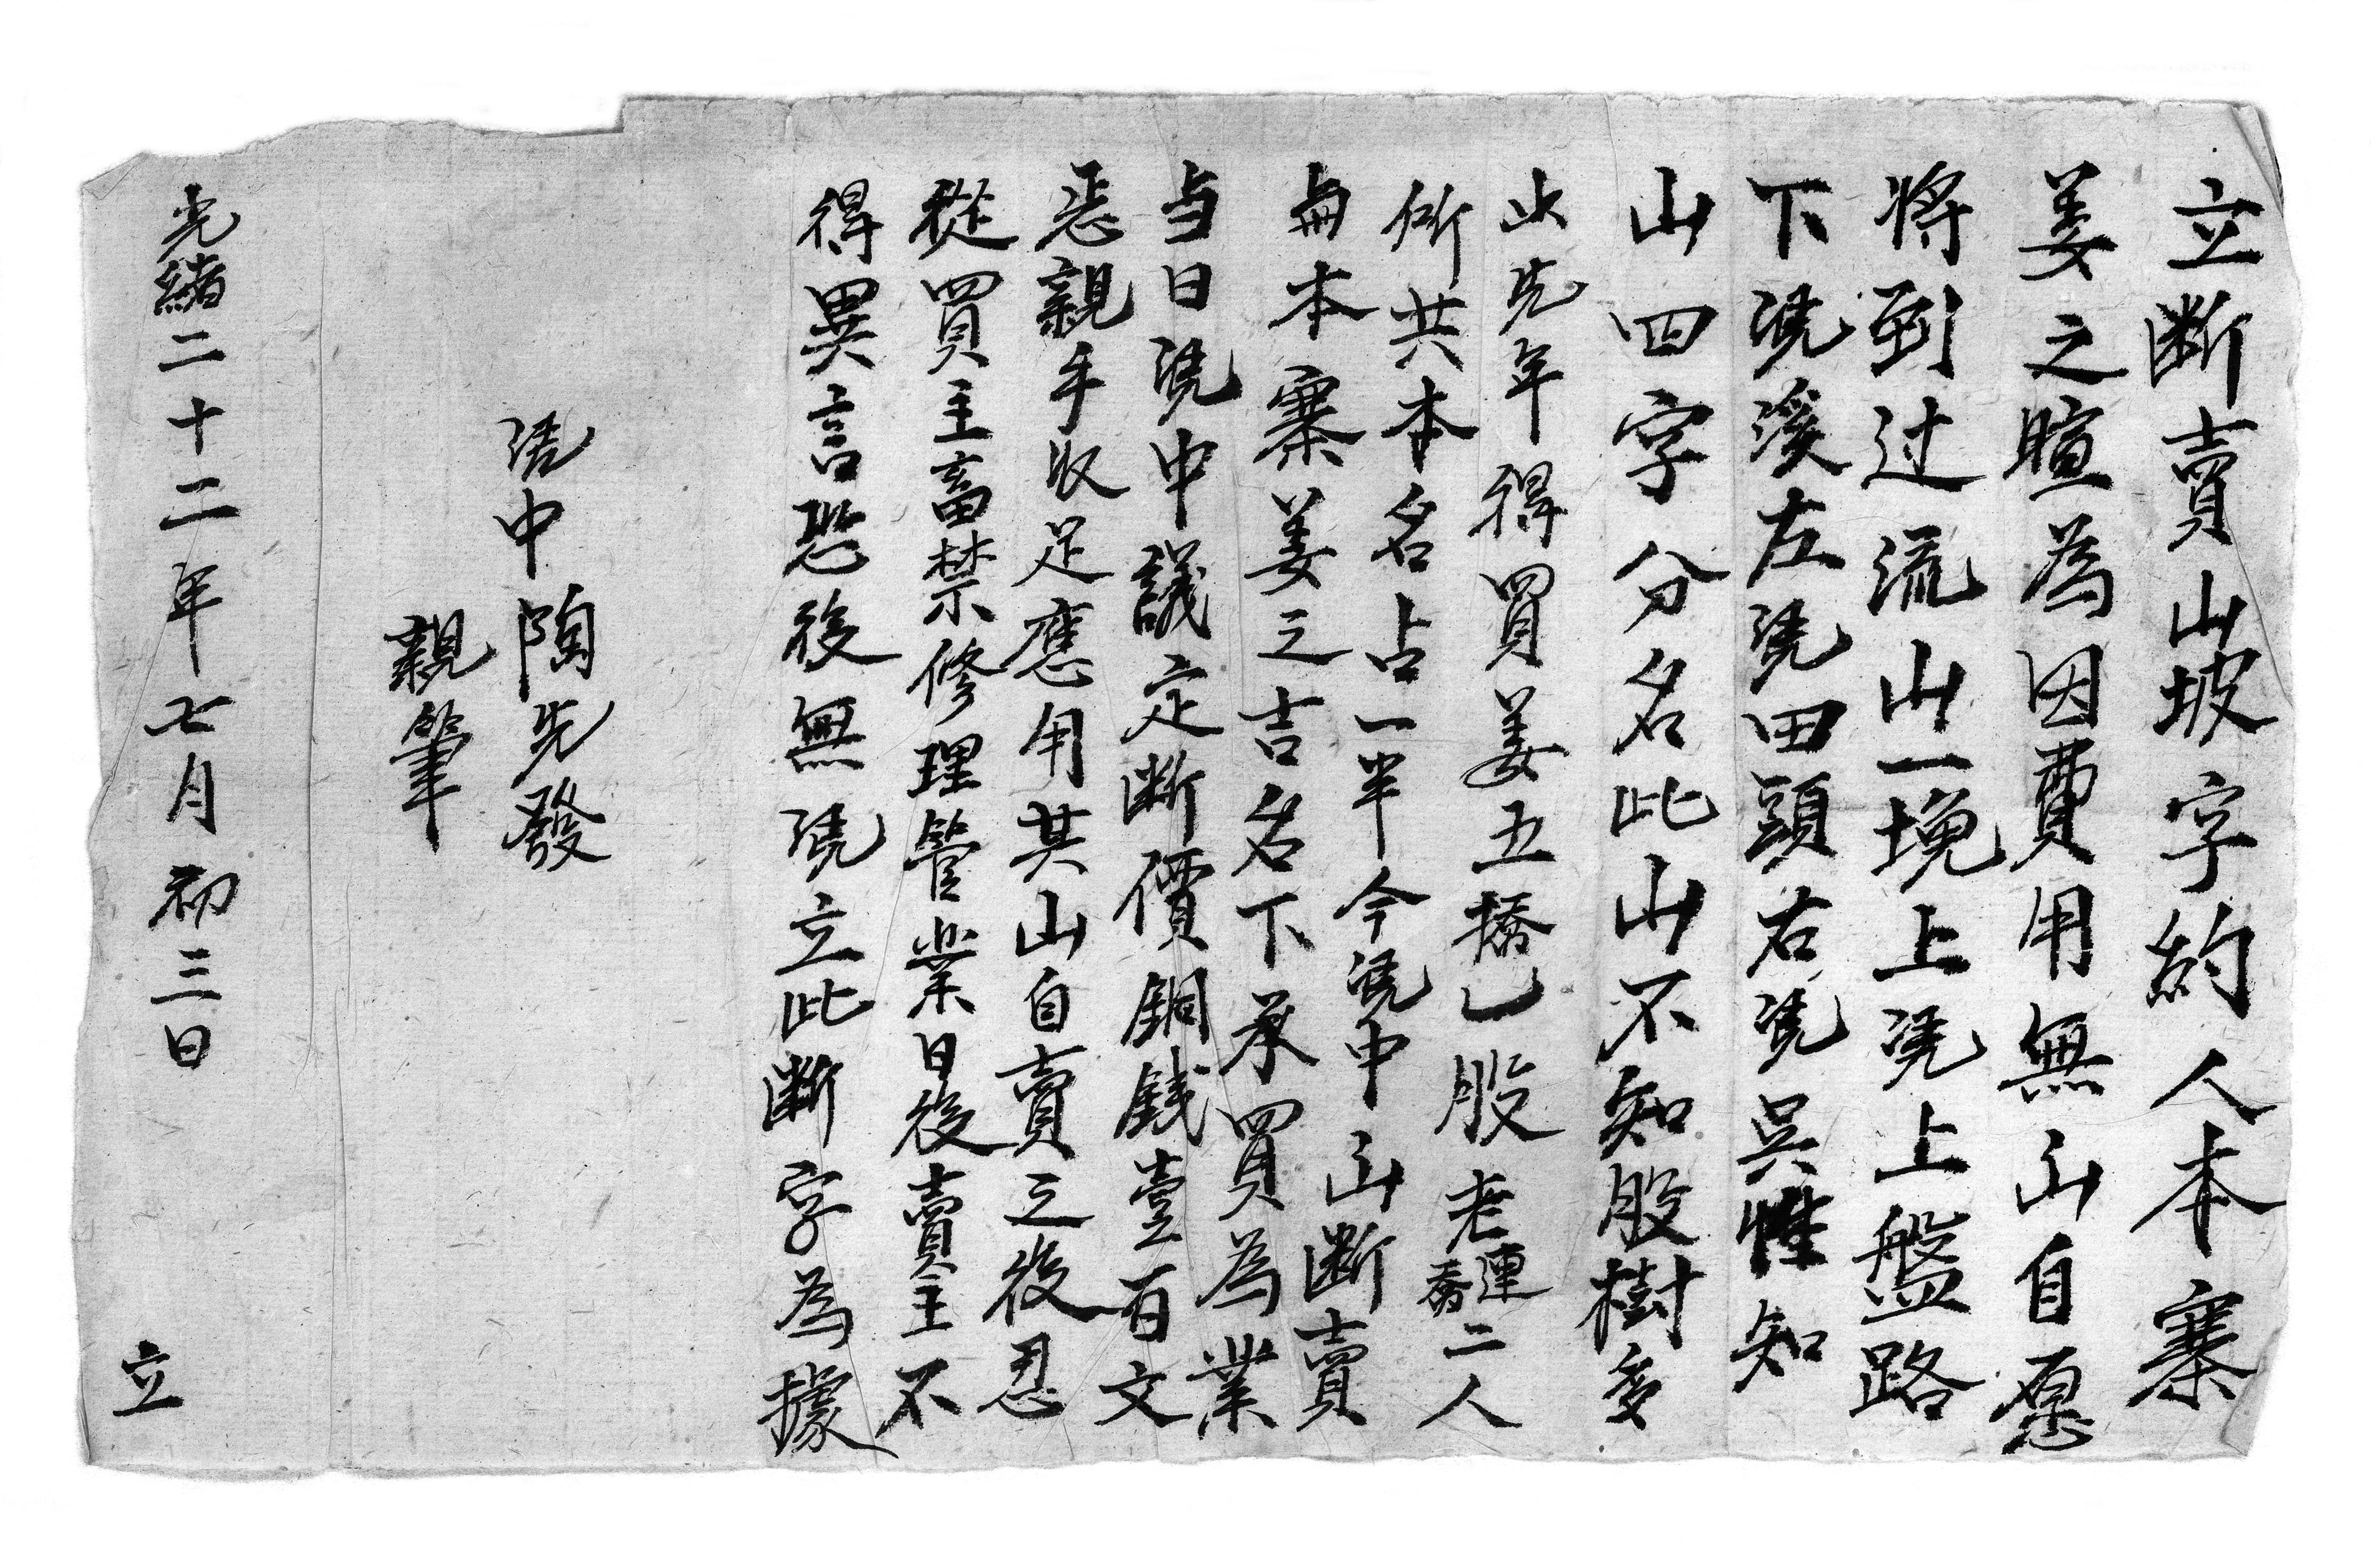 立断賣山坡字約人本寨
姜之暄為因費用無山自愿
將到过流山一塊上凴上盤路
下凴溪左凴田頭右凴吳惟知
山四字分名此山不知股樹多
少先年得買姜五播乚股老連番二人
所共本名占一半今凴中山断賣
與本寨姜之吉名下承買為業
当日凴中議定断價銅錢壹百文
親手收足應用其山自賣之後忍
從買主畜禁修理管業日後賣主不
得異言恐後無凴立此断字為據
凴中陶先發
親筆
光緒二十二年七月初三日 立